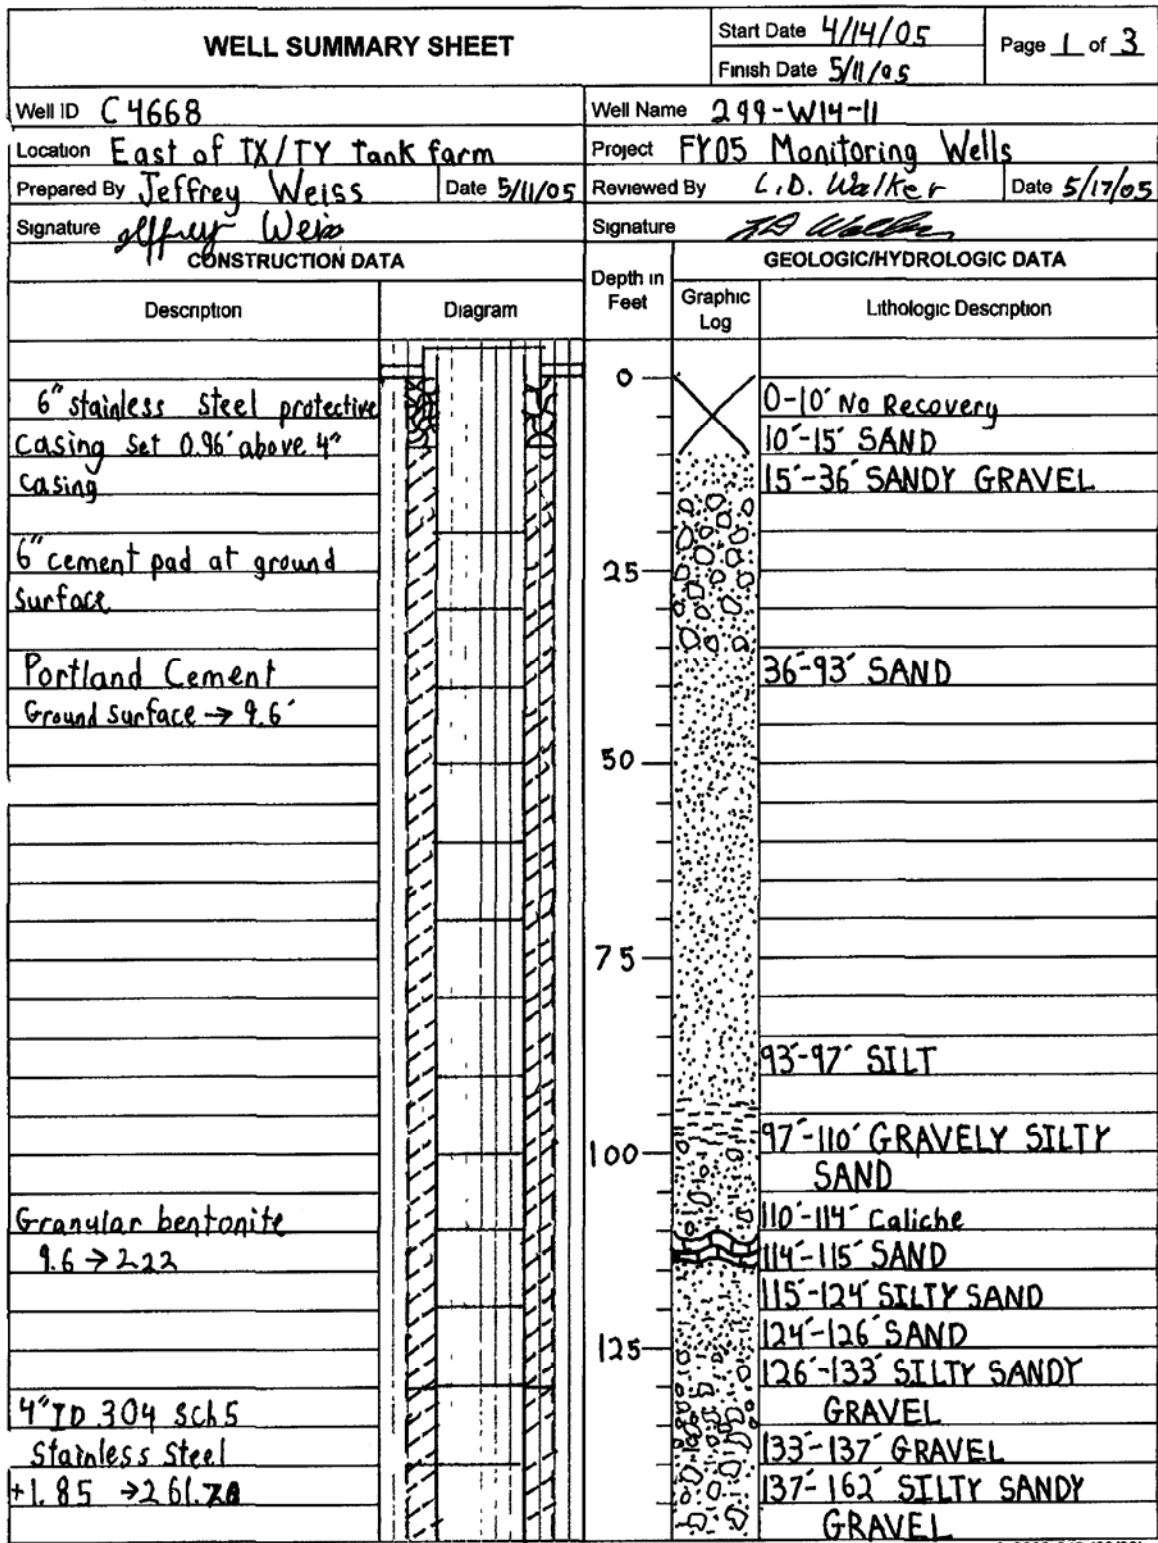 WELL SUMMARY SHEET
Start Date 4/14/05
Finish Date 5/11/05
Page 1 of 3
Well ID C4668
Well Name 299-W14-11
Location East of TX/TY Tank farm
Project FY05 Monitoring Wells
Prepared By Jeffrey Weiss Date 5/11/05
Reviewed By L.D. Walker Date 5/17/05
Signature Jeffrey Weiss
Signature LD Walker
CONSTRUCTION DATA
Depth in
Feet
GEOLOGIC/HYDROLOGIC DATA
Description
Diagram
Graphic
Log
Lithologic Description
6" stainless steel protective
casing set 0.96' above 4"
casing
6" cement pad at ground
surface
Portland Cement
Ground surface → 9.6'
Granular bentonite
9.6 → 222
4" ID 304 sch 5
stainless steel
+1.85 → 261.78
0
25
50
75
100
125
0-10' No Recovery
10'-15' SAND
15'-36' SANDY GRAVEL
36'-93' SAND
93'-97' SILT
97'-110' GRAVELY SILTY
SAND
110'-114' Caliche
114'-115' SAND
115'-124' SILTY SAND
124'-126' SAND
126'-133' SILTY SANDY
GRAVEL
133'-137' GRAVEL
137'-162' SILTY SANDY
GRAVEL